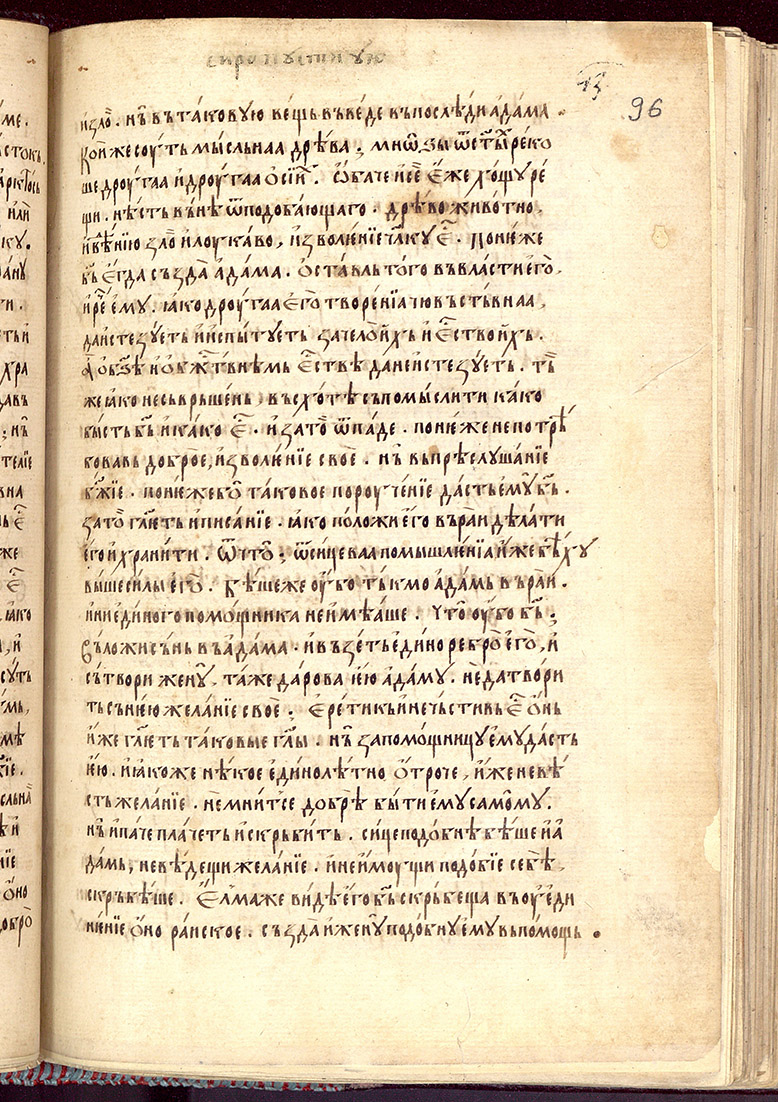 сиропустную
43
96
изло̀. нь҆ вьта́ковую ве́щь въве́де въпослѣ́ди а҆да́ма
Ко́и же соу́ть мы́сльнаа дрѣ́ва ; мнѡ҆ѕы ѿст҃ыⷯ реко
ше дроу́гаа и҆дроу́гаа ѻ҆си́ⷯ. Ѻ҆ба́че и҆се҆ Є҆́же хо́щу ре́
щи. нѣ́сть вь́нѣ ѿподоба́ющаго. дрѣ́во живо́тно,
и҆вѣ́нїю зло̀ и҆лоука́во, и҆зволе́нїе чл҃ку є҆ⷭ. Поне́же
бь҃ є҆гда̀ създа̀ а҆да́ма. ѻ҆ста́вль того̀ въвла́сти є҆го̀,
и҆рⷱе є҆му. ꙗ҆́ко дроу́гаа є҆го̀ творе́нїа чю́въстъвнаа,
да и҆стезꙋ́еть и҆и҆спы́туеть за чело̀и҆хь и҆ є҆ⷭство и҆́хь.
А҆ ѻ҆бз҃ѣ и҆ѻ҆бжⷭ҇твнѣмь є҆ⷭствѣ да не и҆стезꙋ́еть. тъ́
же ꙗ҆́ко несьврьше́нь въсхо́тѣ съпомы́слити ка́ко
бы́сть бь҃ и҆ка́ко є҆ⷭ. и҆ зато̀ ѿпа́де. поне́же не потрѣ́
бовавь до́брое, и҆зволе́нїе своѐ. нь҆ вьпрѣслуша́нїе
бж҃їе. поне́же бѡ҆ та́ковое пороуче́нїе да́сть є҆мꙋ̀ бь҃.
зато̀ гл҃еть и҆писа́нїе. ꙗ҆́ко по́ложи є҆го̀ вьра́и дѣ́лати
є҆го̀ и҆хра́нити. Ѿ что̀ ; ѿ си́цеваа помышле́нїа и҆́же бѣ́хꙋ
вы́ше си́лы є҆го̀. Бѣ́ше же оу҆́бо тъ́кмо а҆да́мь вьра́и.
и҆ ни є҆ди́ного помо́щника не и҆мѣ́аше. Что̀ оу҆́бо бь҃ ;
Вьложи сь́нь въ а҆да́ма. и҆възе́ть є҆ди́но ребро̀ є҆го̀, и҆
сьтвори женꙋ̀, та́же да́рова ю҆ а҆да́му. не да твори́
ть сь не́ю жела́нїе своѐ ; Є҆рети́кь и҆нече́стивь є҆ⷭ ѻ҆́нь
и҆́же гл҃еть та́ковые гл҃ы. нь҆ за помо́щницу є҆му да́сть
ю҆. и҆ꙗ҆́коже нѣ́кое є҆диноло́ѣтно ѻ҆́троче, и҆́же не вѣ́
сть жела́нїе. не мни́тсе до́брѣ бы́ти є҆му само́му.
нь҆ и҆па́че пла́четь и҆скрьби́ть. си́це подо́бнѣ бѣ́ше и҆а҆
да́мь, не вѣ́дещи жела́нїе. и҆не и҆моу́щи подо́бїе себѣ̀,
скрьбѣ́ше. Є҆лма́же видѣ є҆го̀ бь҃ скрьбе́ща въ оу҆є҆ди
не́нїе ѻ҆́но ра́иское. създа̀ и҆женꙋ̀ подо́бну є҆му вьпо́мощь.